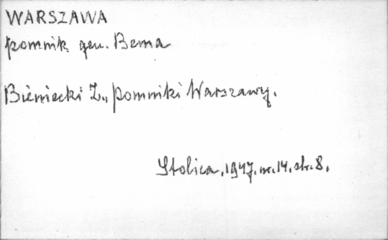 WARSZAWA
pomnik gen. Bema
Bieniecki Z., Pomniki Warszawy.
Stolica, 1947, nr. 14, str. 8.